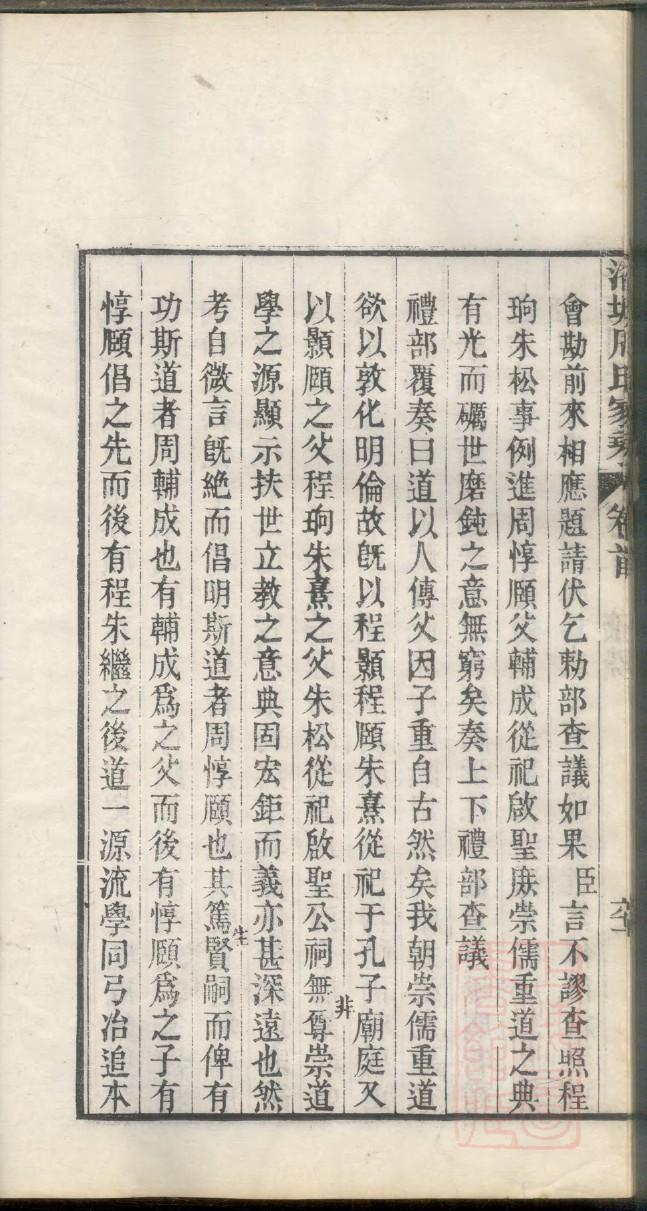 會勘前來相應題請伏乞勅部查議如果臣言不謬查照程
珦朱松事例進周惇頤父輔成從祀啟聖庶崇儒重道之典
有光而礪世磨鈍之意無窮矣奏上下禮部查議
禮部覆奏曰道以人傳父因子重自古然矣我朝崇儒重道
欲以敦化明倫故既以程顥程頤朱熹從祀于孔子廟庭又
以顥頤之父程珦朱熹之父朱松從祀啟聖公祠無非尊崇道
學之源顯示扶世立教之意典固宏鉅而義亦甚深遠也然
考自微言既絶而倡明斯道者周惇頤也其篤生賢嗣而俾有
功斯道者周輔成也有輔成爲之父而後有惇頤爲之子有
惇頤倡之先而後有程朱繼之後道一源流學同弓冶追本
卷首